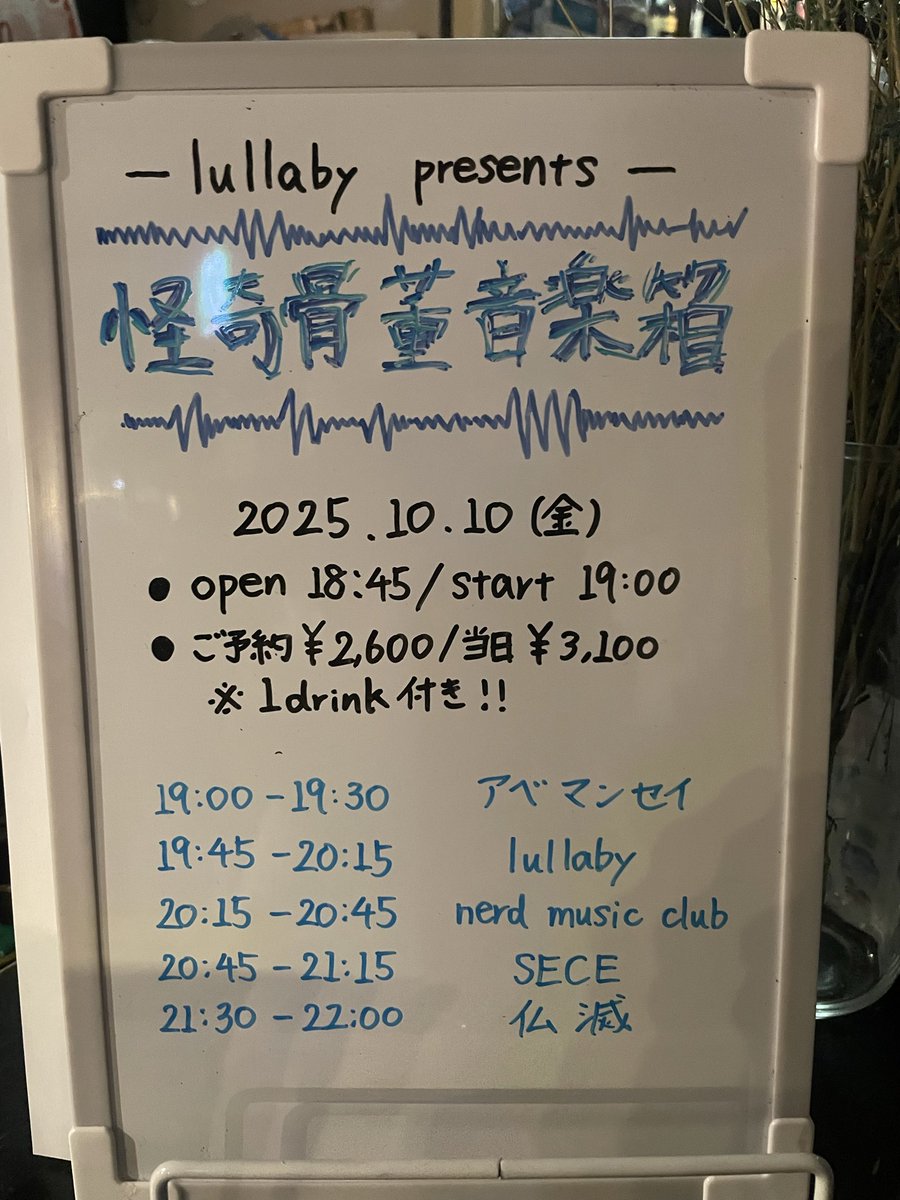 — lullaby presents —
怪奇骨董音楽箱
2025.10.10 (金)
● open 18:45 / start 19:00
● ご予約 ¥2,600 / 当日 ¥3,100
※ 1drink 付き!!
19:00 - 19:30 アベマンセイ
19:45 - 20:15 lullaby
20:15 - 20:45 nerd music club
20:45 - 21:15 SECE
21:30 - 22:00 仏滅